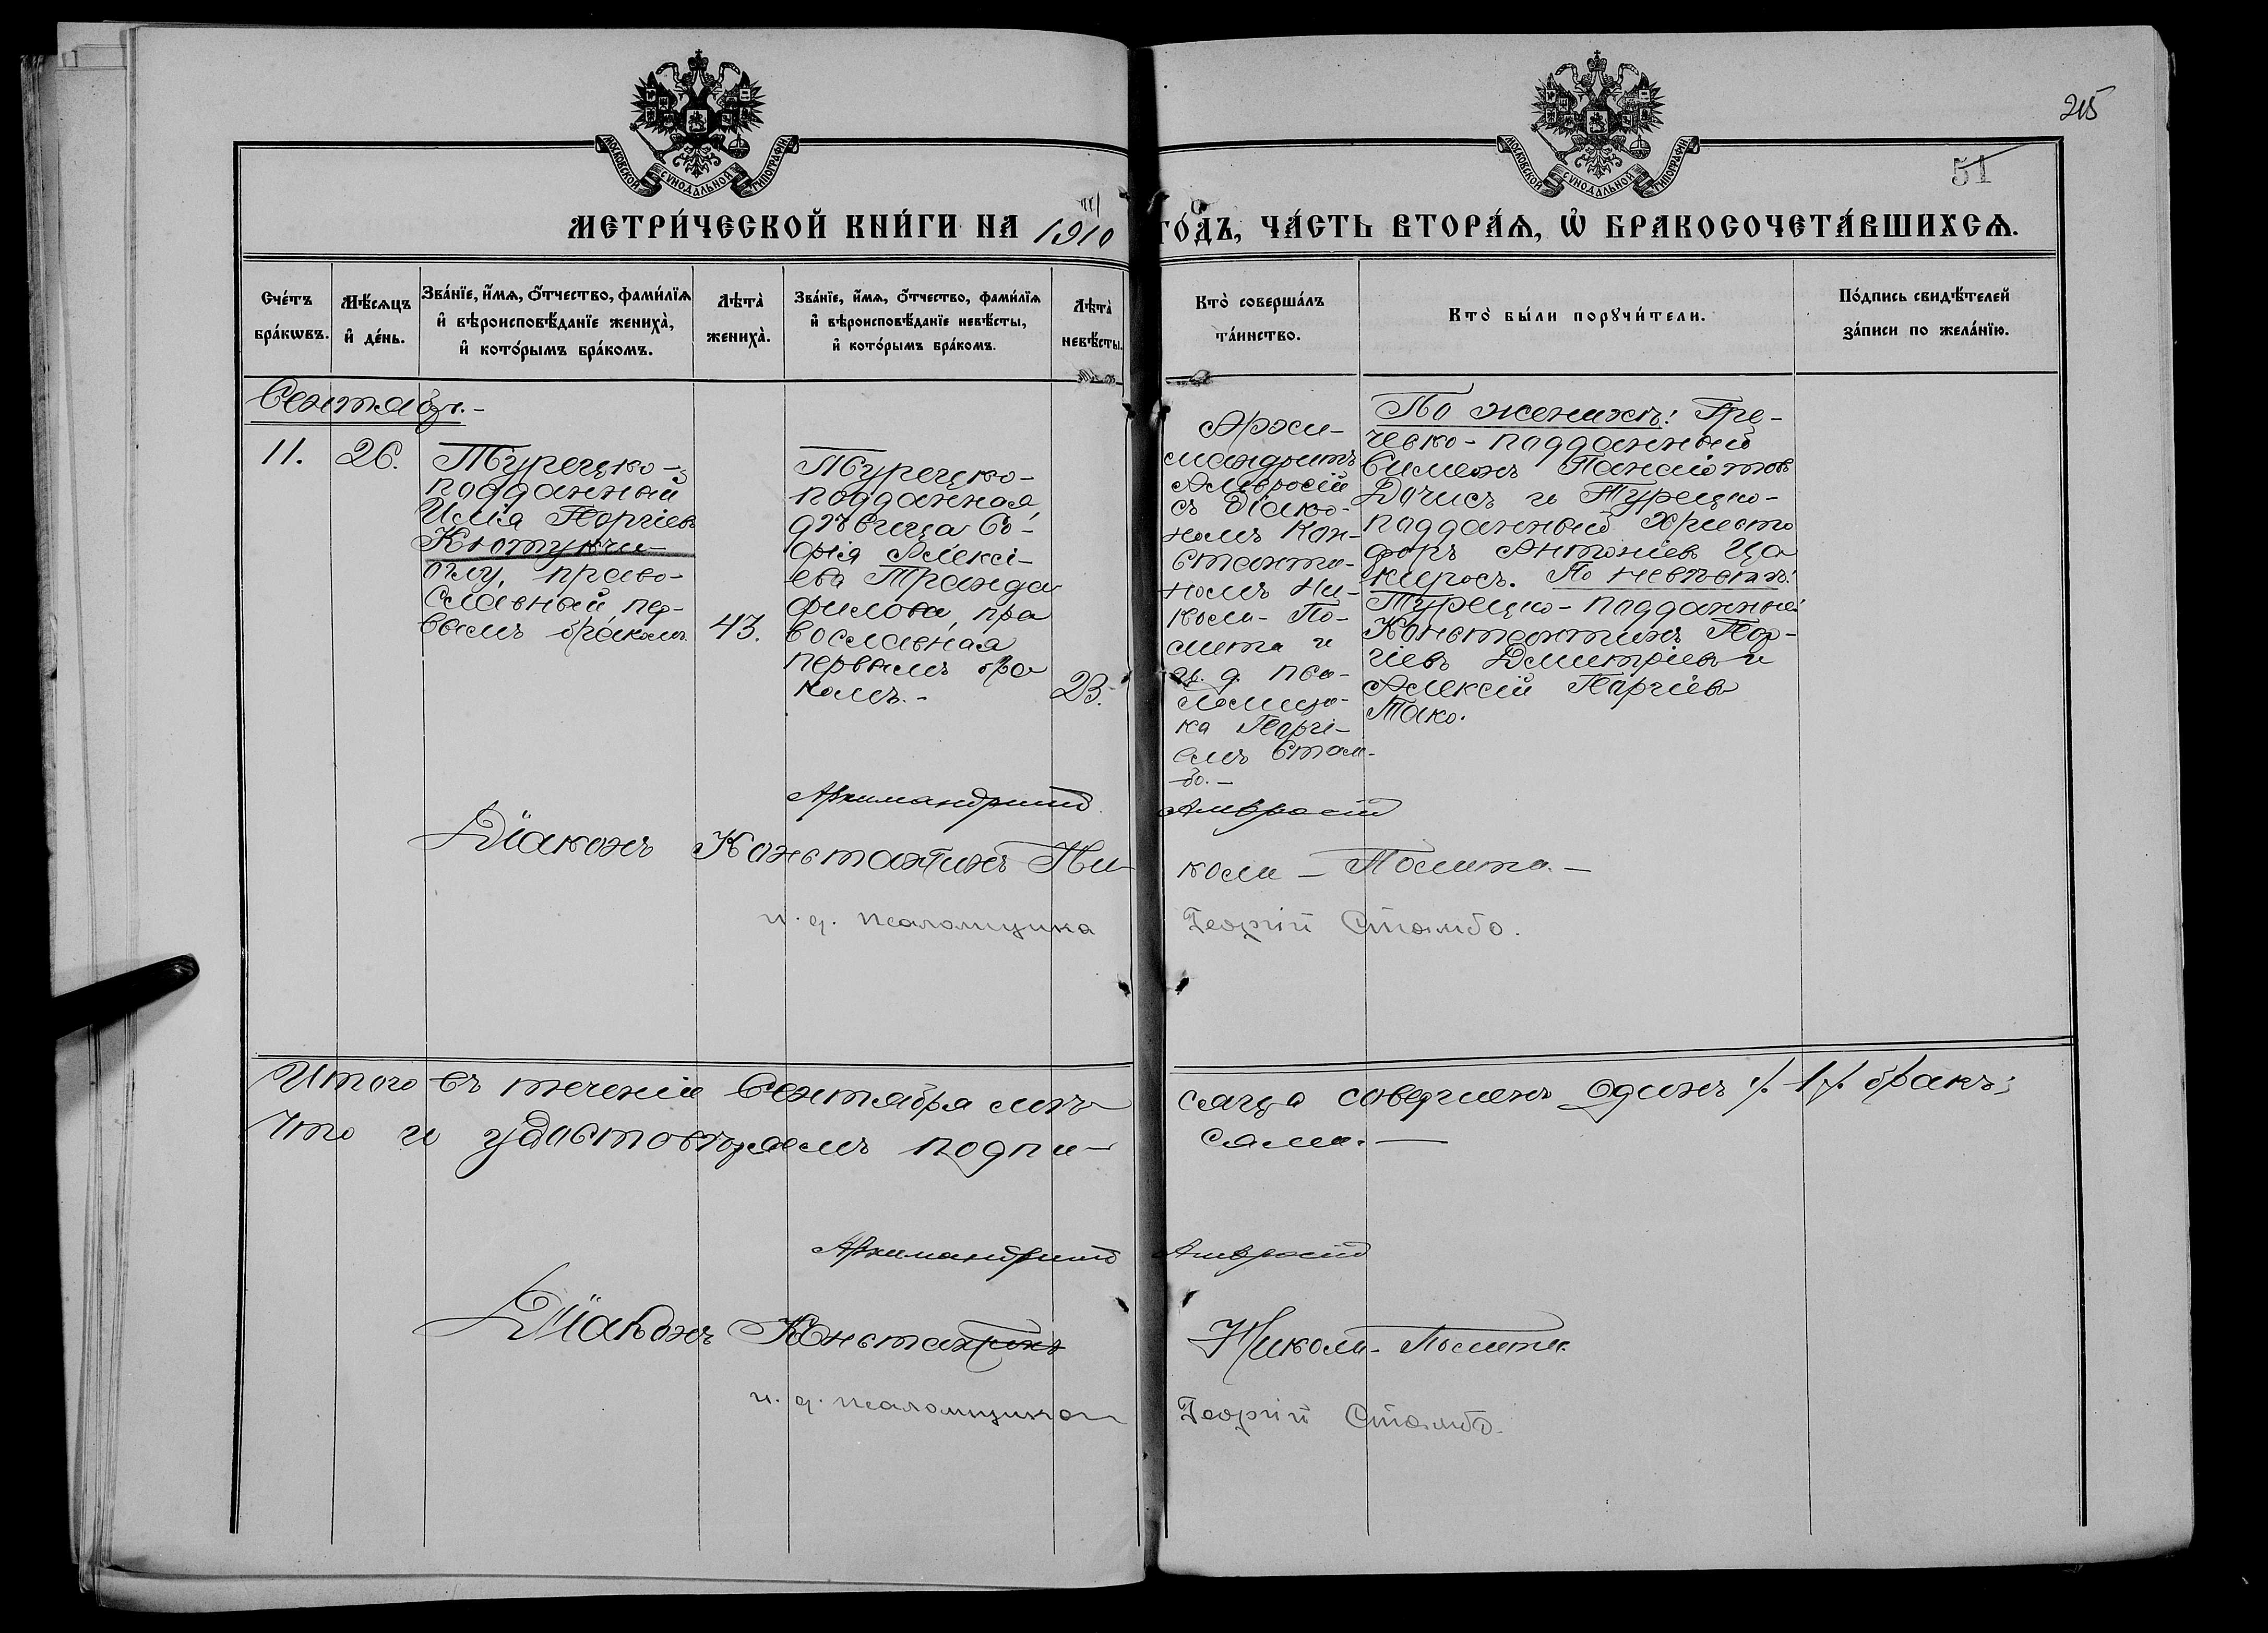 215
51
МОСКОВСКОЙ СУНОДАЛЬНОЙ ТИПОГРАФІИ
МОСКОВСКОЙ СУНОДАЛЬНОЙ ТИПОГРАФІИ
МЕТРИ́ЧЕСКОЙ КНИ́ГИ НА 1910 ГО́ДЪ, ЧА́СТЬ ВТОРА́Ѧ, Ѽ БРАКОСОЧЕТА́ВШИХСѦ.
Сче́тъ
бра́кѡвъ.
Мѣ́сѧцъ
и҆ де́нь.
Зва́нїе, и҆́мѧ, ѻ҆́тчество, фами́лїѧ
и҆ вѣроисповѣ́данїе жениха̀,
и҆ кото́рымъ бра́комъ.
Лѣта̀
жениха̀.
Зва́нїе, и҆́мѧ, ѻ҆́тчество, фами́лїѧ
и҆ вѣроисповѣ́данїе невѣ́сты,
и҆ кото́рымъ бра́комъ.
Лѣта̀
невѣ́сты.
Кто̀ соверша́лъ
та́инство.
Кто̀ бы́ли порꙋчи́тели.
По́дпись свидѣ́телей
за́писи по жела́нїю.
Сентябрь.-
11.
26.
Турецко-
подданный
Илія Георгіевъ
Кютукчи-
оглу, право-
славный пер-
вымъ бракомъ
43.
Турецко-
подданная,
дѣвица Со-
фія Алексі-
ева Транда
филова, пра
вославная
первымъ бра
комъ.-
23.-
Архи-
мандритъ
Амвросій
съ діако-
номъ Кон-
станти-
номъ Ни-
коли-По-
лита и
и. д. пса-
ломщи-
ка Георгі-
емъ Стам-
бо.-
По женихѣ: Гре-
ческо-подданный
Симеонъ Панаіотовъ
Дочисъ и Турецко-
подданный Христо
форъ Антоніевъ Ца
киросъ. По невѣстѣ:
Турецко-подданные:
Константинъ Геор-
гіевъ Димитріевъ и
Алексѣй Георгіевъ
Тако.
Архимандритъ Амвросій
Діаконъ Константинъ Николи-Полита.-
и. д. псаломщика Георгій Стамбо.
Итого въ теченіи Сентября мѣсяца совершенъ одинъ /.1/. бракъ;
Что и удостовѣряемъ подписями.-
Архимандритъ Амвросій
Діаконъ Константинъ Николи-Полита
и. д. псаломщика Георгій Стамбо.